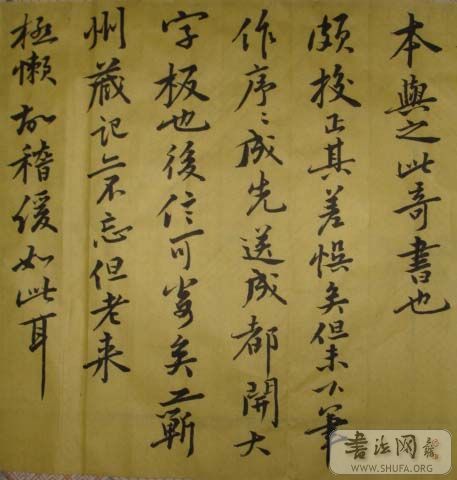 本與之此奇書也
頗挍正其差悞矣但未下筆
作序〻成先送成都開大
字板也後信可寄矣上蘄
州藏記亦不忘但老来
極懶故稽緩如此耳
書法网
WWW.SHUFA.ORG